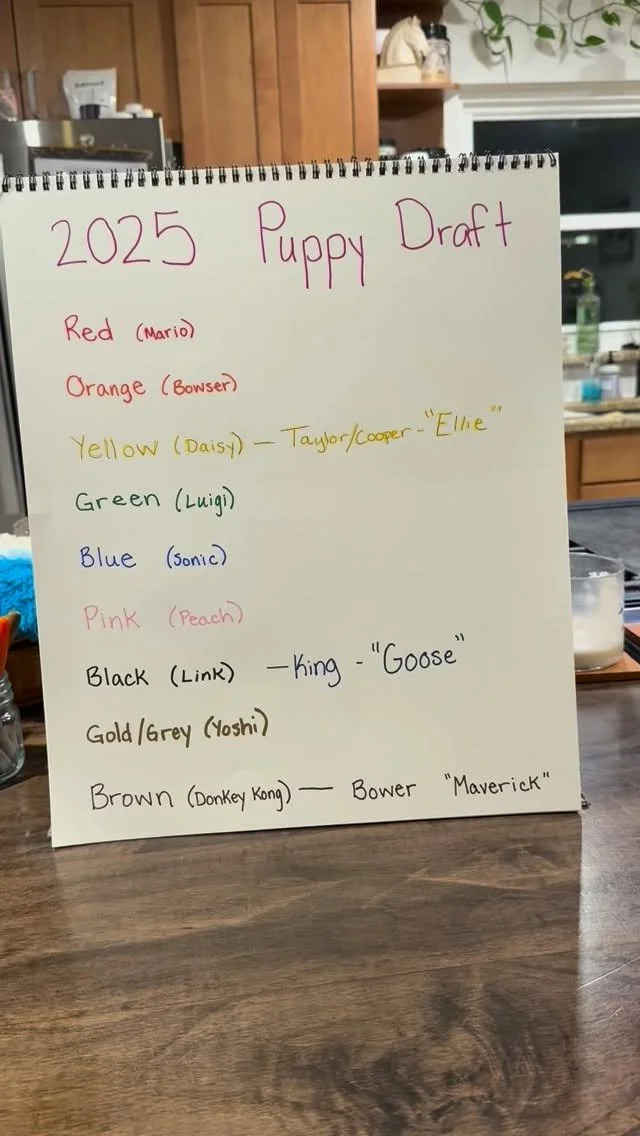 2025 Puppy Draft
Red (Mario)
Orange (Bowser)
Yellow (Daisy) — Taylor/Cooper - "Ellie"
Green (Luigi)
Blue (Sonic)
Pink (Peach)
Black (Link) — King - "Goose"
Gold/Grey (Yoshi)
Brown (Donkey Kong) — Bower "Maverick"